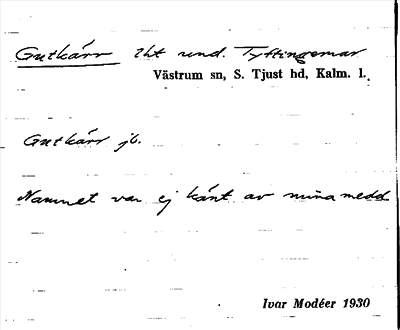 Gutkärr lht und. Tyftingemar
Västrum sn, S. Tjust hd, Kalm. l.
Gutkärr jb.
Namnet var ej känt av mina medd.
Ivar Modéer 1930